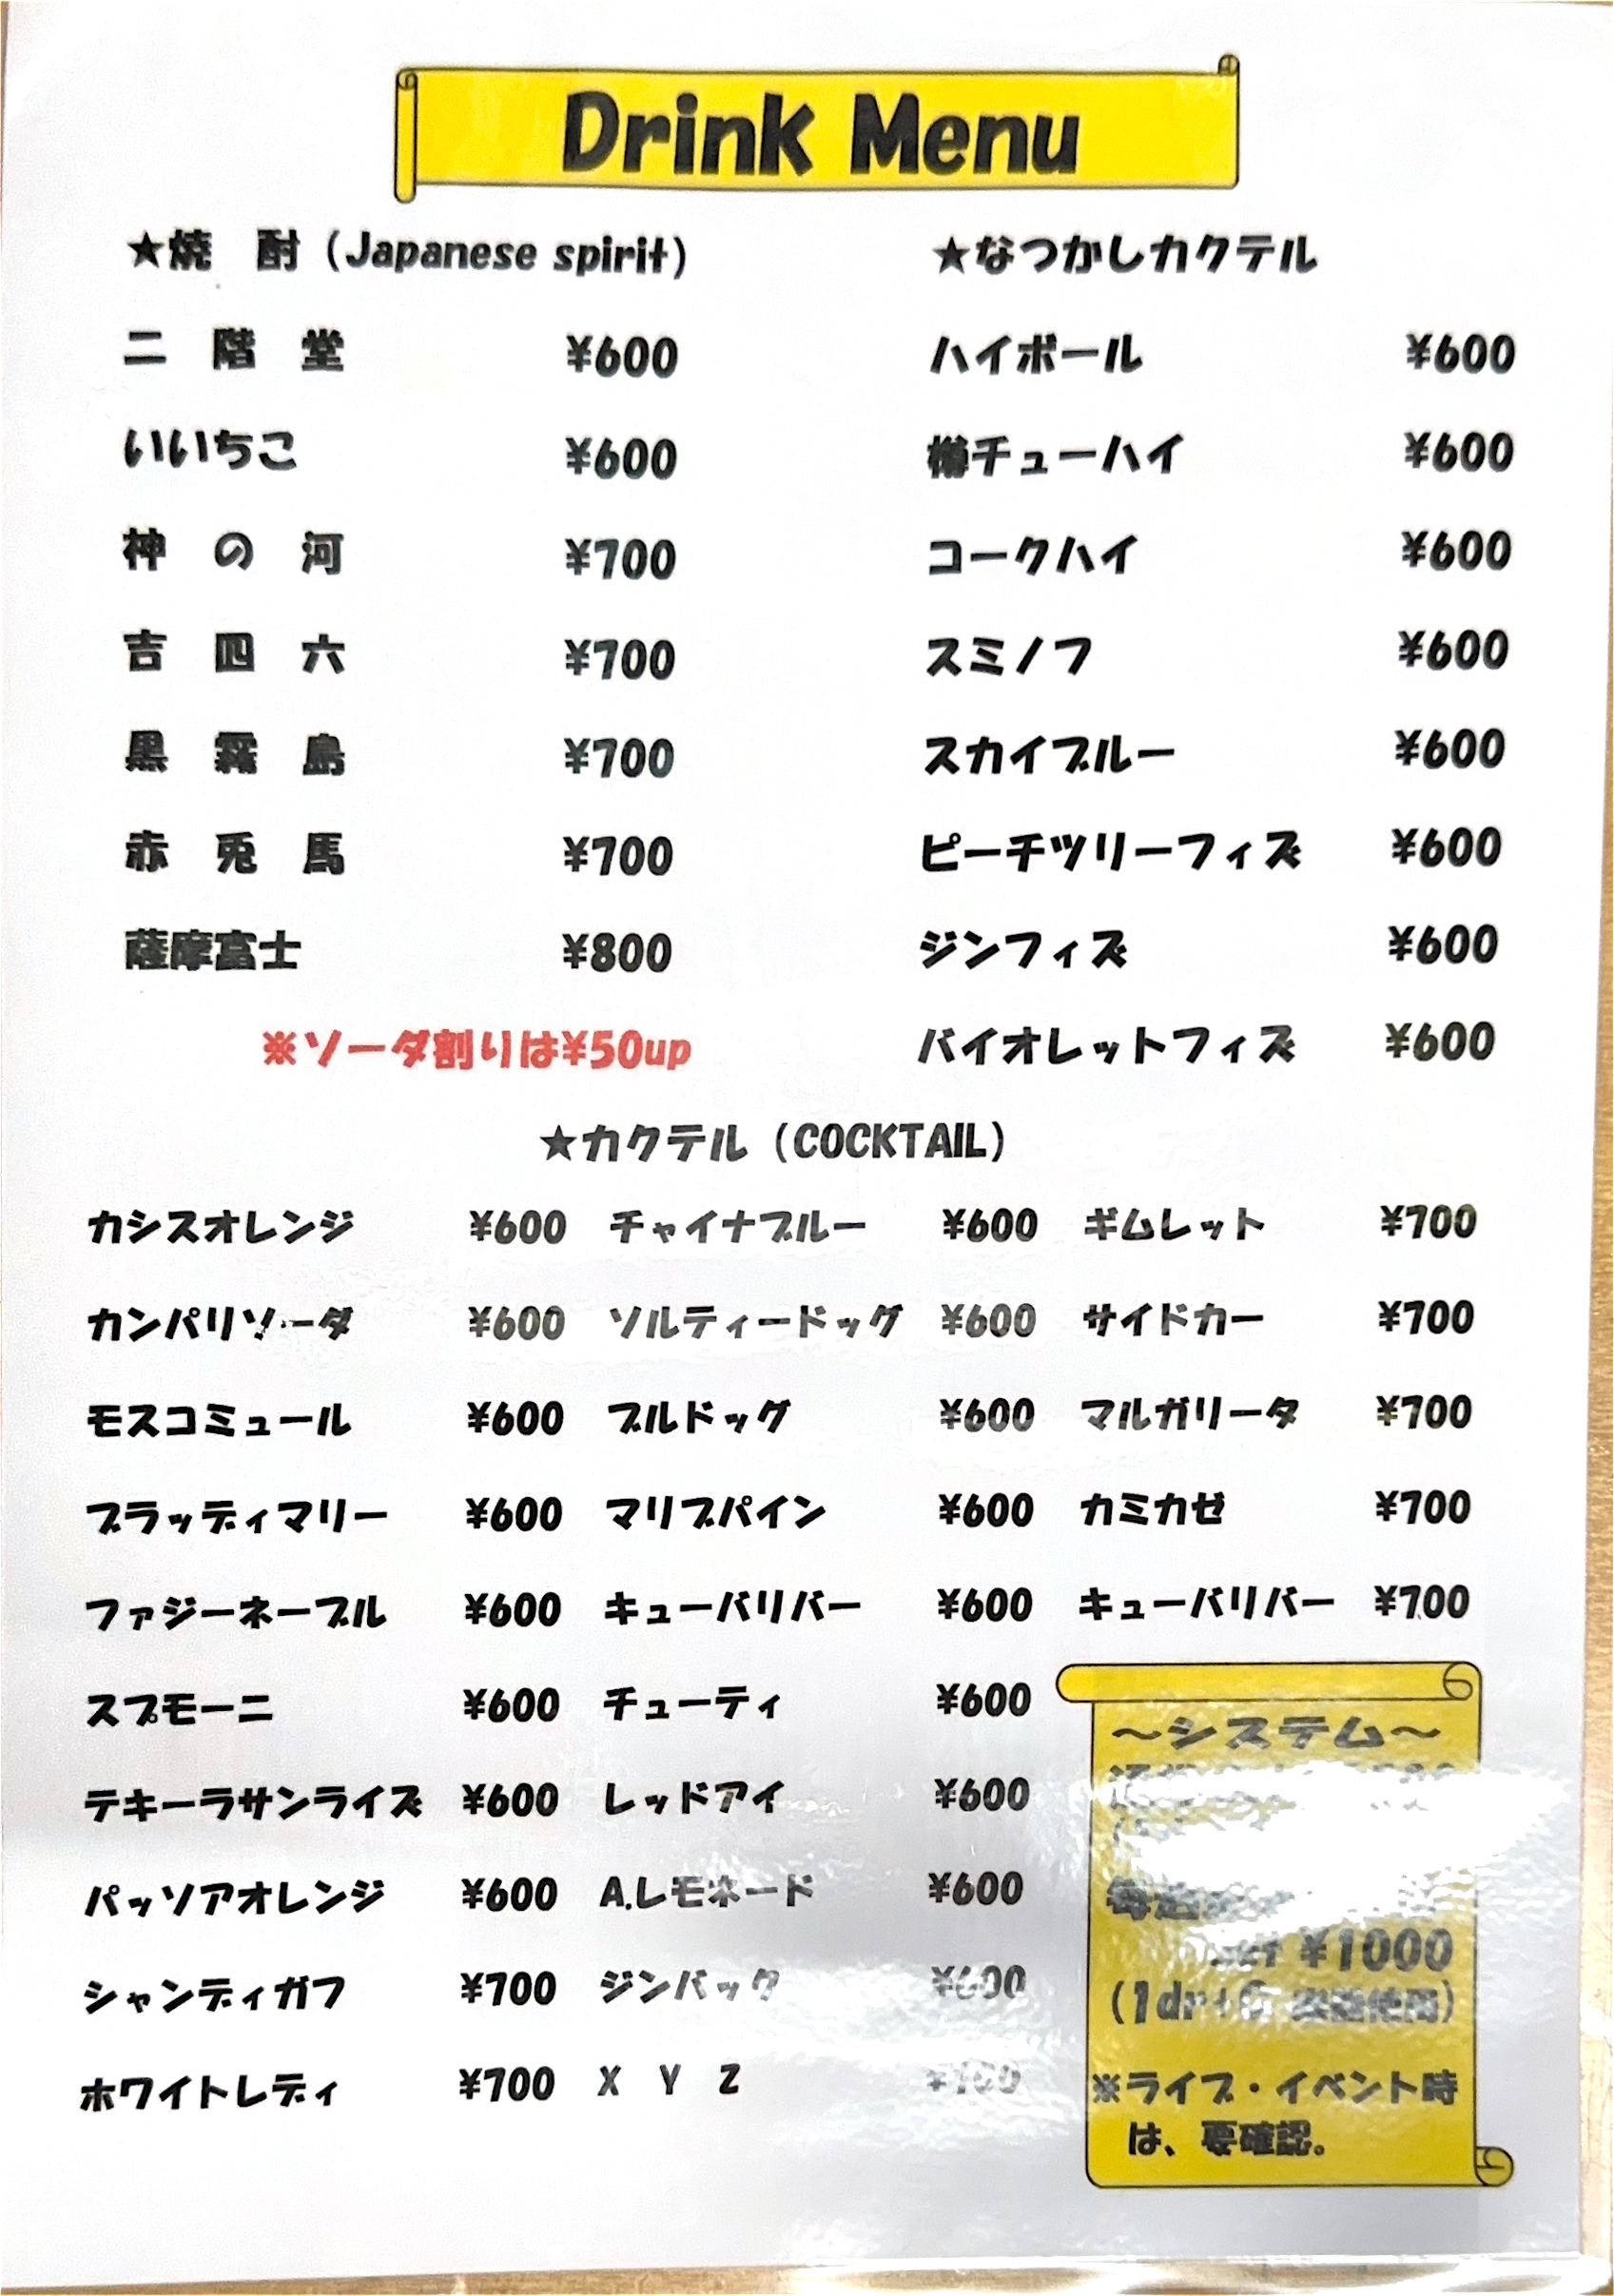 Drink Menu
★焼　酎（Japanese spirit）
二　階　堂　¥600
いいちこ　¥600
神　の　河　¥700
吉　四　六　¥700
黒　霧　島　¥700
赤　兎　馬　¥700
薩摩富士　¥800
※ソーダ割りは¥50up
★なつかしカクテル
ハイボール　¥600
樽チューハイ　¥600
コークハイ　¥600
スミノフ　¥600
スカイブルー　¥600
ピーチツリーフィズ　¥600
ジンフィズ　¥600
バイオレットフィズ　¥600
★カクテル（COCKTAIL）
カシスオレンジ　¥600
カンパリソーダ　¥600
モスコミュール　¥600
ブラッディマリー　¥600
ファジーネーブル　¥600
スプモーニ　¥600
テキーラサンライズ　¥600
パッソアオレンジ　¥600
シャンディガフ　¥700
ホワイトレディ　¥700
チャイナブルー　¥600
ソルティードッグ　¥600
ブルドッグ　¥600
マリブパイン　¥600
キューバリバー　¥600
チューティ　¥600
レッドアイ　¥600
A.レモネード　¥600
ジンバック　¥600
X　Y　Z　¥700
ギムレット　¥700
サイドカー　¥700
マルガリータ　¥700
カミカゼ　¥700
キューバリバー　¥700
～システム～
set ¥1000
※ライブ・イベント時
は、要確認。